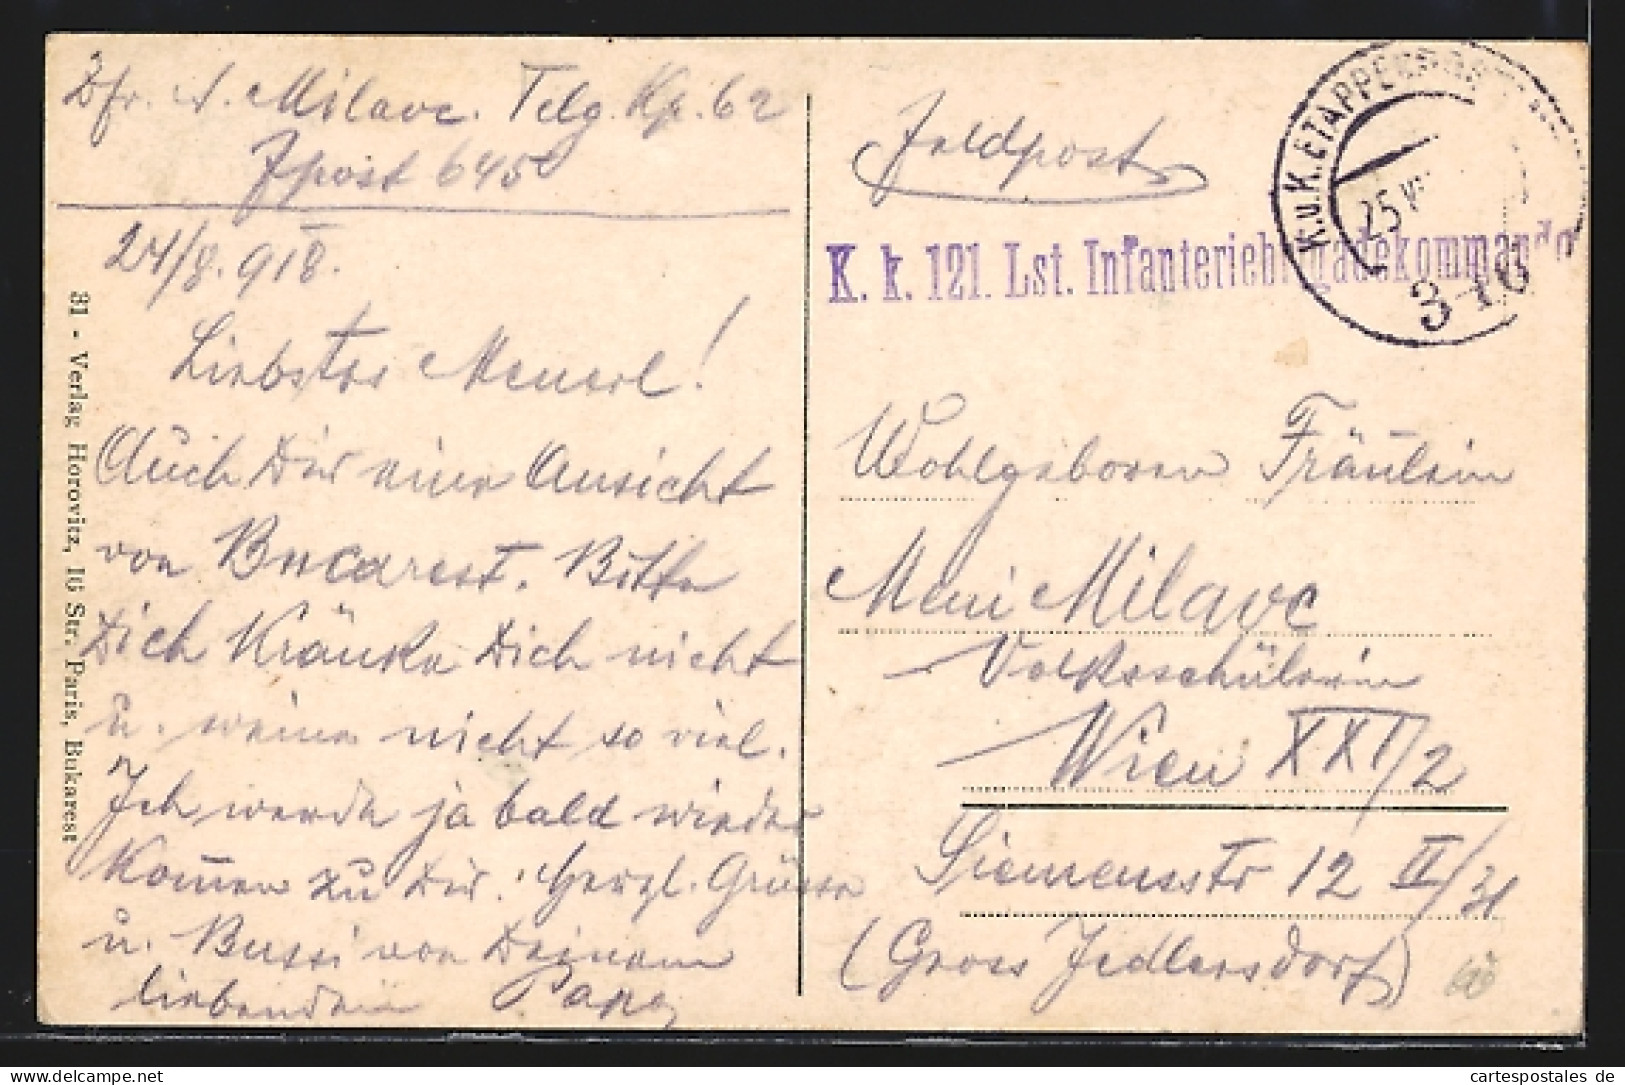 Zfr. A. Milavc. Telg. Kp. 62
Fpost 645
24/8. 918.
Liebstes Menerl!
Auch Dir eine Ansicht
von Bucarest. Bitte
Dich Kränke Dich nicht
u. weine nicht so viel.
Ich werde ja bald wieder
Kom̄en zu Dir. Herzl. Grüsse
u. Bussi von Deinem
liebenden Papa
31 - Verlag Horovitz, 16 Str. Paris, Bukarest
Feldpost
K. u. K. ETAPPENPOST
25 V
316
K. k. 121. Lst. Infanteriebrigadekommando
Wohlgeboren Fräulein
Meni Milavc
Volksschülerin
Wien XXI/2
Siemensstr 12 II/31
(Gross Jedlersdorf)
delcampe.net
cartespostales de